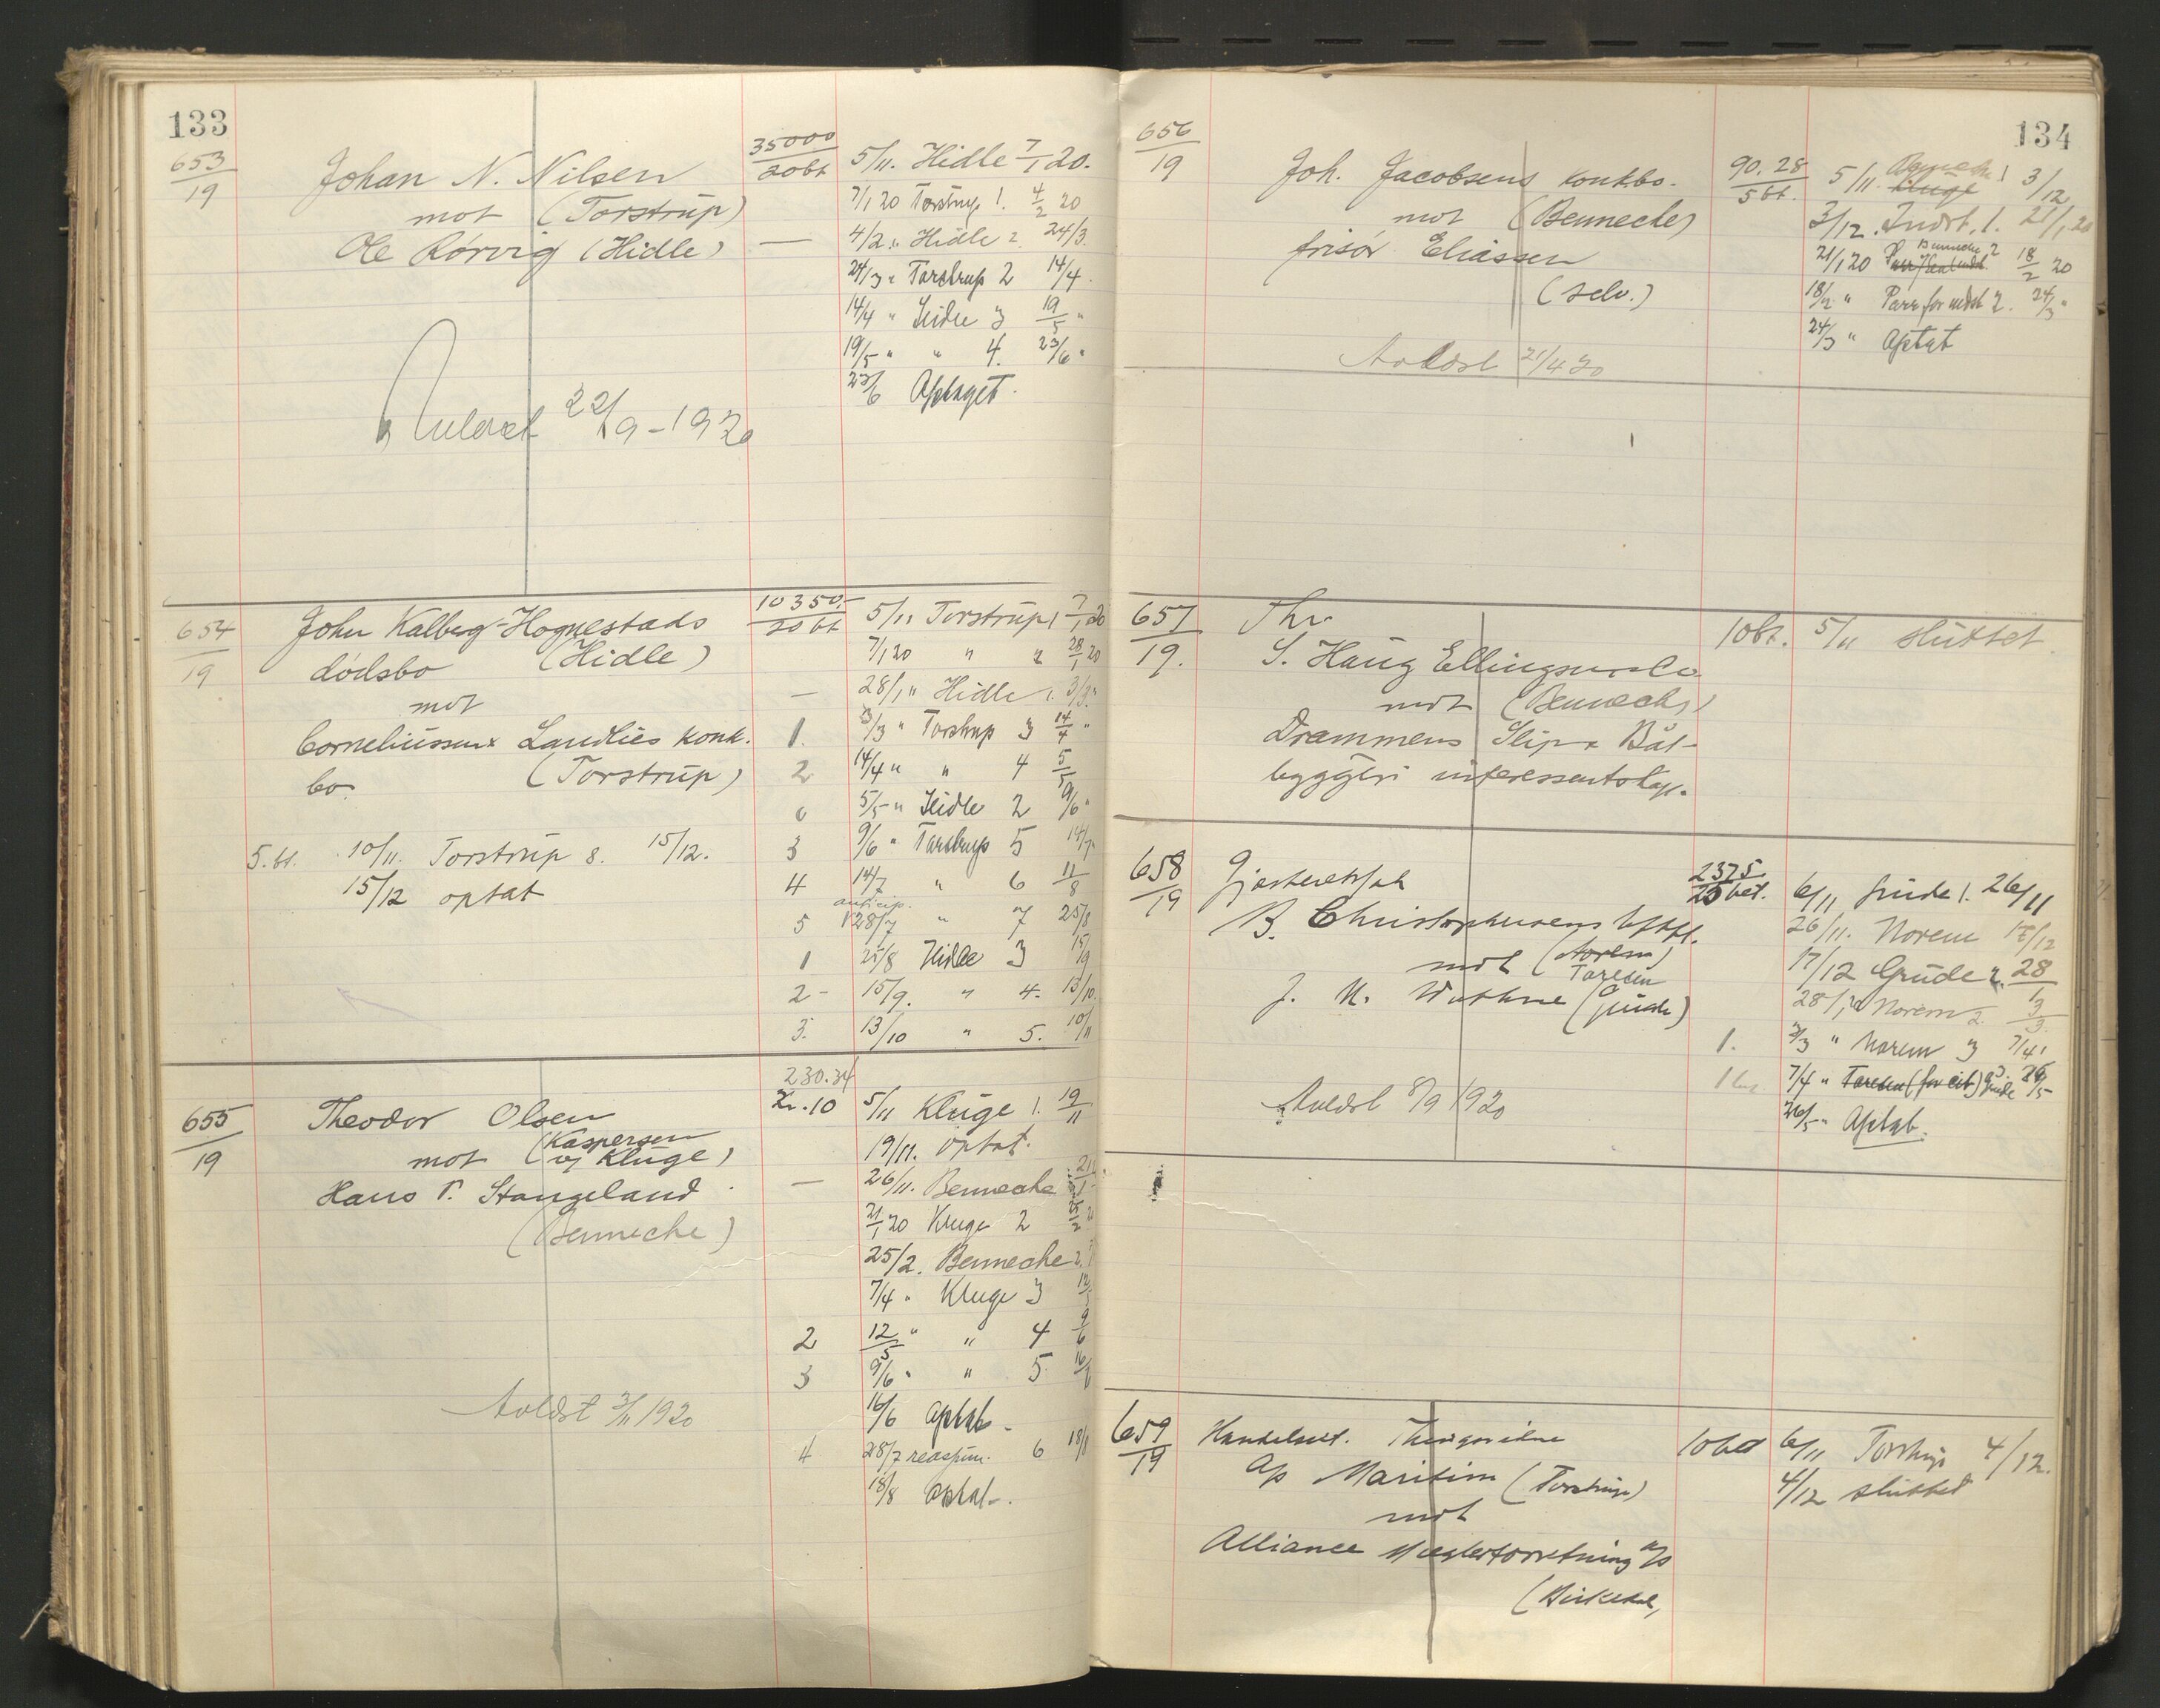 133
653/19
Johan N. Nilsen
mot (Torstrup)
Ole Rørvig (Hidle)
35000
20 bt
—
5/11. Hidle 7/1 20.
7/1 20 Torstrup 1. 4/2 20
4/2 " Hidle 2. 24/3.
24/3 " Torstrup 2 14/4.
14/4 " Hidle 3 19/5 "
19/5 " " 4. 23/6 "
23/6 Optaget.
22/9 - 1920
654/19
John Kalberg-Hognestads
dødsbo (Hidle)
mot
Corneliussen & Landlies konk.
bo. (Torstrup)
10350.-
20 bt
5/11 Torstrup 1 7/1 20
7/1 20 " 2 28/1 20
— 28/1 " Hidle 1. 3/3 "
1. 3/3 " Torstrup 3 14/4 "
2 14/4 " " 4 5/5
0 5/5 " Hidle 2 9/6 "
3 9/6 " Torstrup 5 14/7
4 14/7 " 6 11/8
anticip.
5 28/7 " 7 25/8
1 25/8 Hidle 3 15/9
2 - 15/9. " 4. 13/10.
3. 13/10 " 5. 10/11
5. bt. 10/11. Torstrup 8. 15/12.
15/12 optat
655/19
Theodor Olsen
mot (Kaspersen
v/ Kluge)
Hans T. Stangeland
(Bennecke)
230.34
Kr. 10
5/11 Kluge 1. 19/11
19/11. optat.
— 26/11. Bennecke 21/1
21/1 20 Kluge 2 25/2 20
25/2. Bennecke 2.
7/4 " Kluge 3 12/5
2 12/5 " " 4 9/6
3 9/6 " " 5 16/6
16/6 optat -
4 28/7 reasjum. 6 18/8
18/8 optat -.
Avldst 3/11 1920
134
656/19
Joh. Jacobsens konkbo.
mot (Bennecke)
frisør Eliassen
(selv.)
90.28
5 bt.
5/11. Bennecke 1 3/12
3/12. Indst. 1. 21/1 20
Bennecke 2
21/1 20 18/2 20
18/2 " Parr for indst 2. 24/3 "
24/3 " Optat
Avldst 21/4 20
657/19.
Thr.
S. Haug Ellingsen & Co
mot (Bennecke)
Drammens Slip & Båt-
byggeri interessentskap.
10 bt.
5/11 sluttet.
658/19
Gjesteretssak
B. Christophersens Eftfl.
mot (Norem)
Taresen
J. M. Wathne (Gude)
2375.
20 bet.
6/11 Gude 1. 26/11
26/11. Norem 17/12
17/12 Gude 2. 28/1
28/1 20 Norem 2. 3/3.
1. 3/3 " Norem 3 7/4 "
7/4 " Taresen (for cit) Gude 3. 26/5
26/5 " Optat.
Avldst 8/9 1920
659/19
Handelsret.
A/s Maritim (Torstrup)
mot
Alliance Meglerforretning A/s
(Birkeland)
10 bet
6/11 Torstrup 4/12.
4/12 sluttet